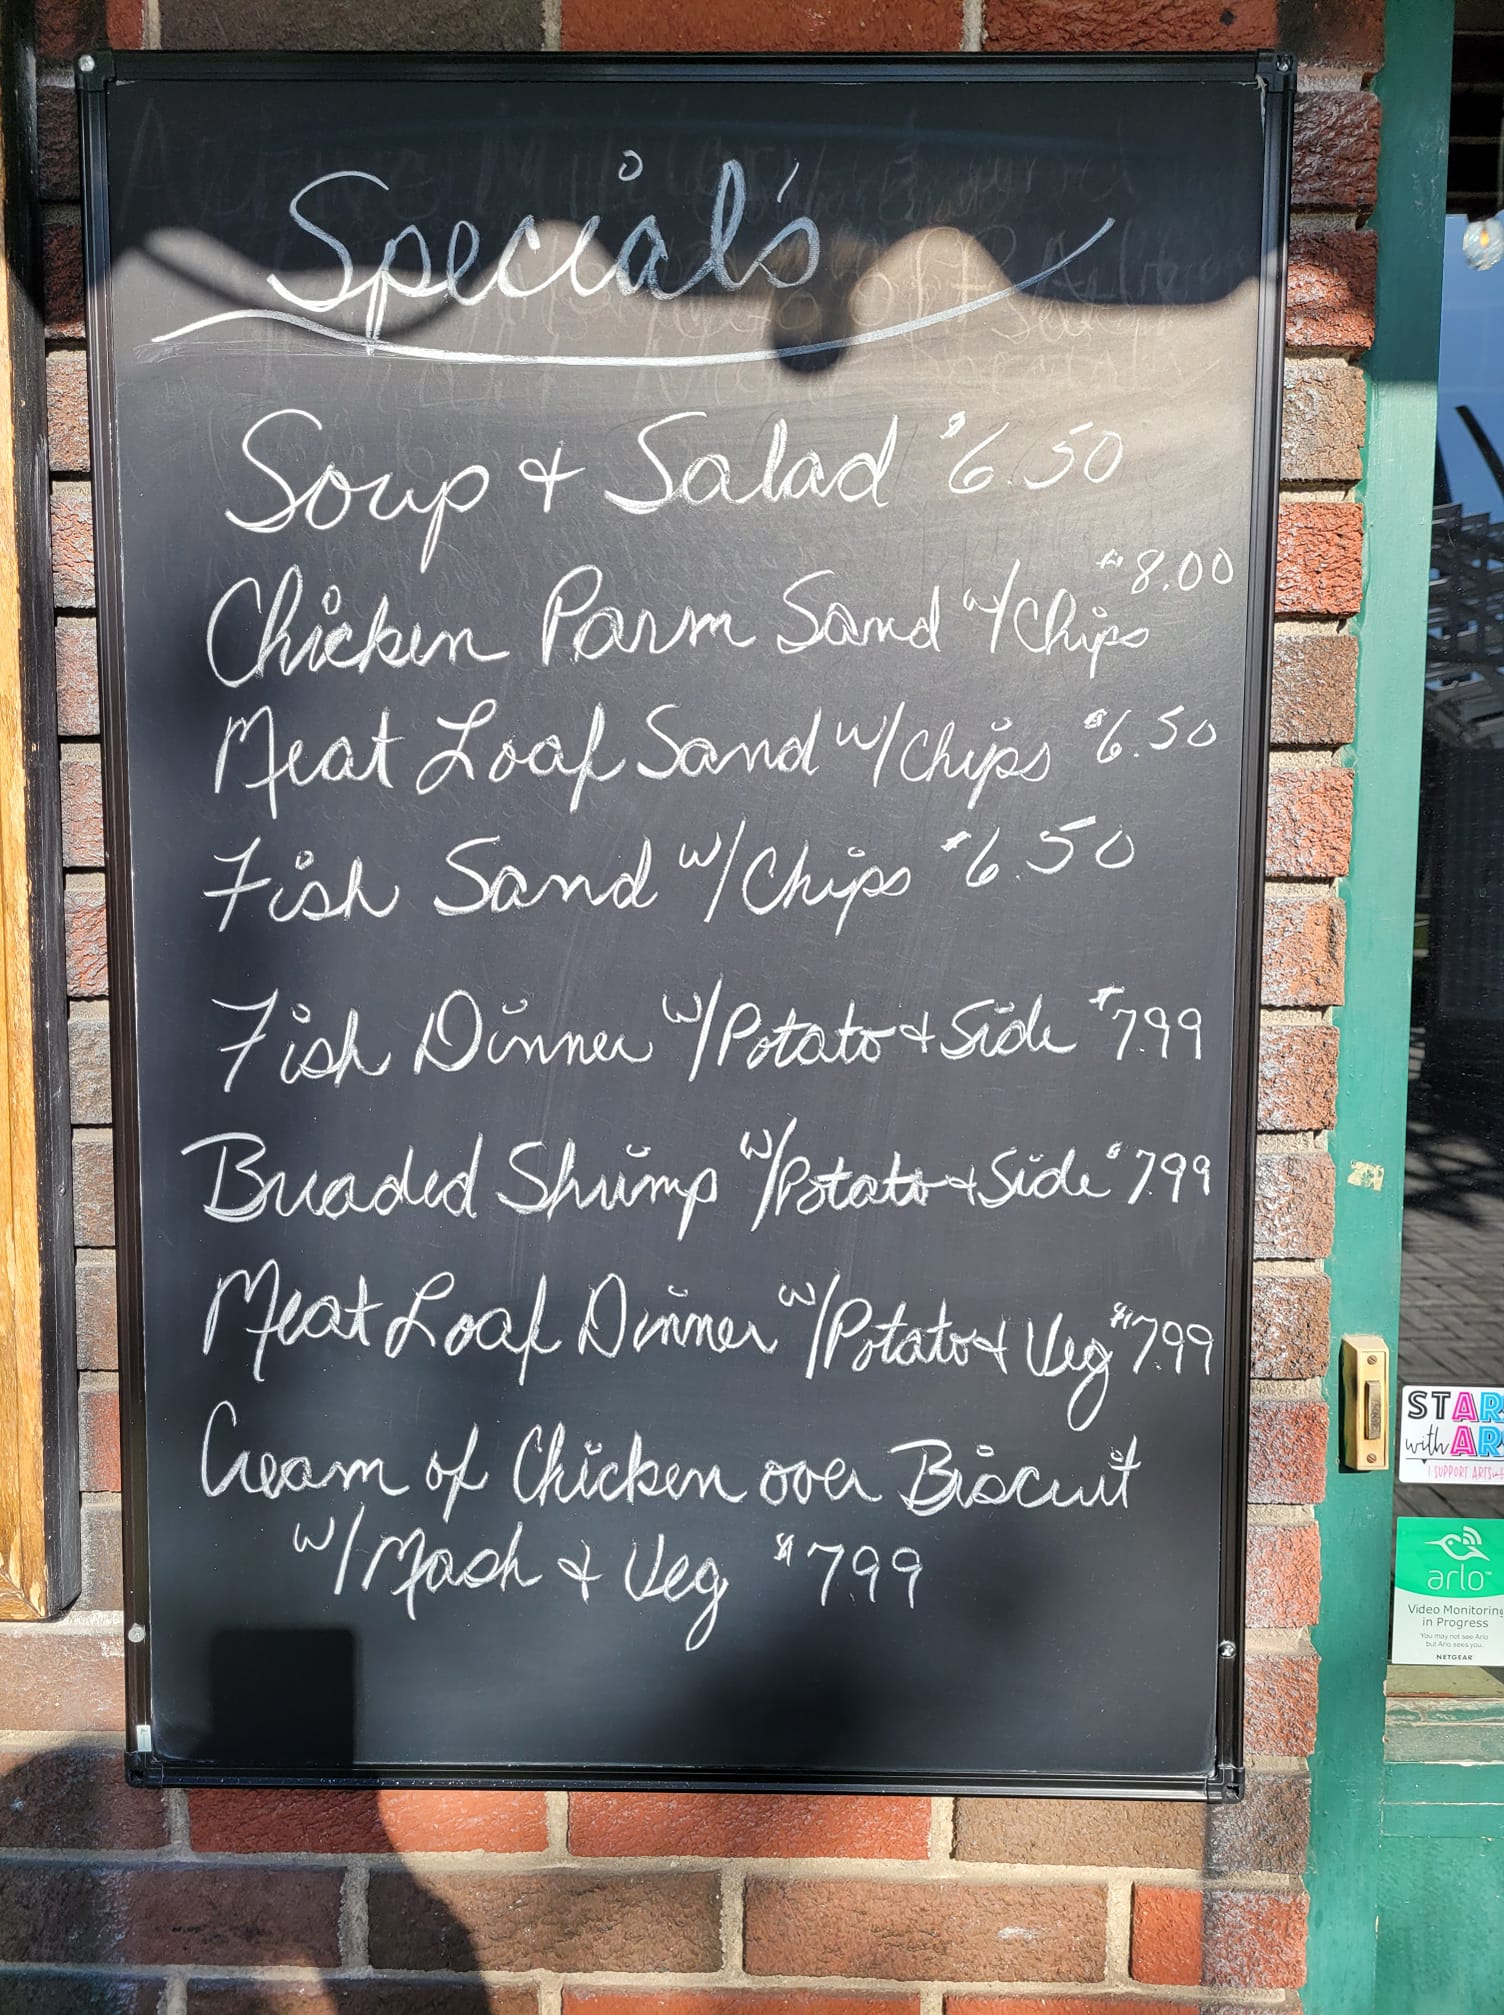 Special's
Soup & Salad $6.50
Chicken Parm Sand w/Chips $8.00
Meat Loaf Sand w/Chips $6.50
Fish Sand w/Chips $6.50
Fish Dinner w/Potato & Side $7.99
Breaded Shrimp w/Potato & Side $7.99
Meat Loaf Dinner w/Potato & Veg $7.99
Cream of Chicken over Biscuit
w/Mash & Veg $7.99
START
with AR
I SUPPORT ARTS
arlo
Video Monitoring
in Progress
You may not see Arlo
but Arlo sees you.
NETGEAR